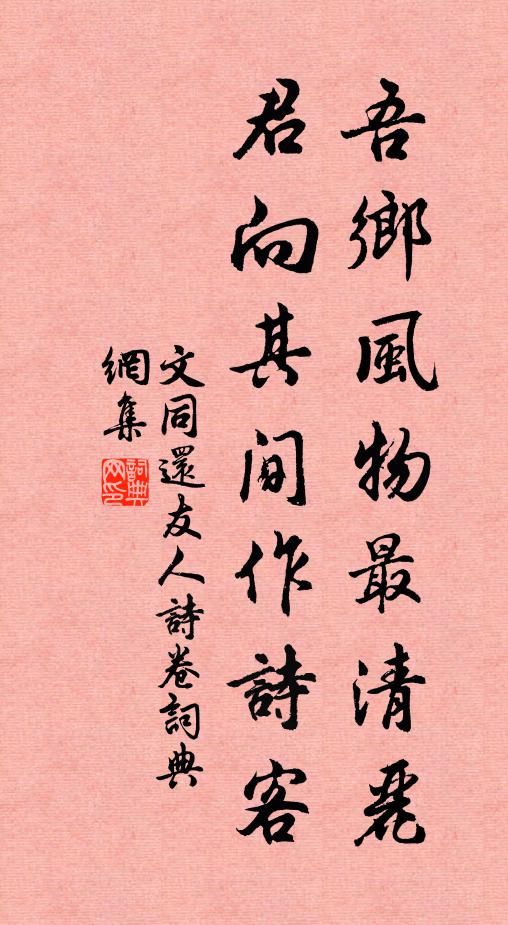 吾鄉風物最清麗
君向其間作詩客
文同還友人詩卷詞典
網集
詞典网印